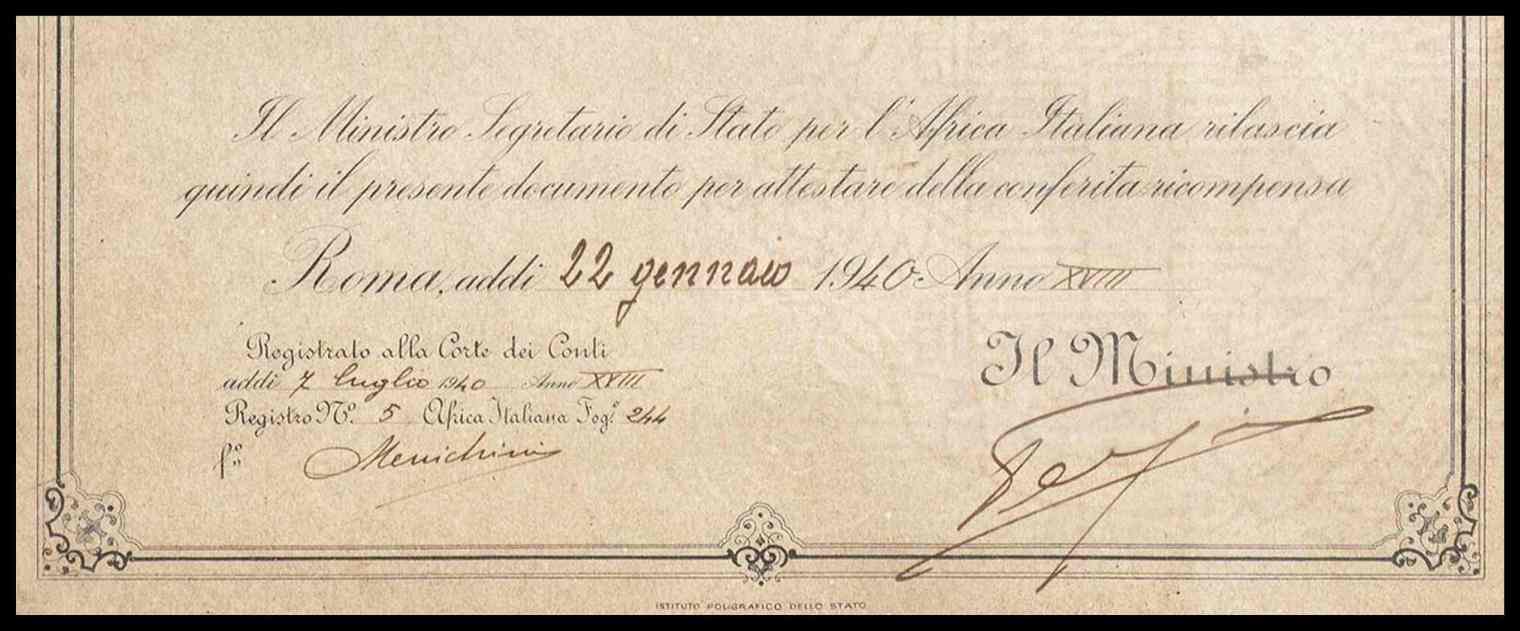 Il Ministro Segretario di Stato per l'Africa Italiana rilascia
quindi il presente documento per attestare della conferita ricompensa
Roma, addì 22 gennaio 1940 Anno XVIII
Registrato alla Corte dei Conti
addì 7 luglio 1940 Anno XVIII
Registro N°. 5 Africa Italiana Fog.° 244
f.° Menichini
Il Ministro
ISTITUTO POLIGRAFICO DELLO STATO